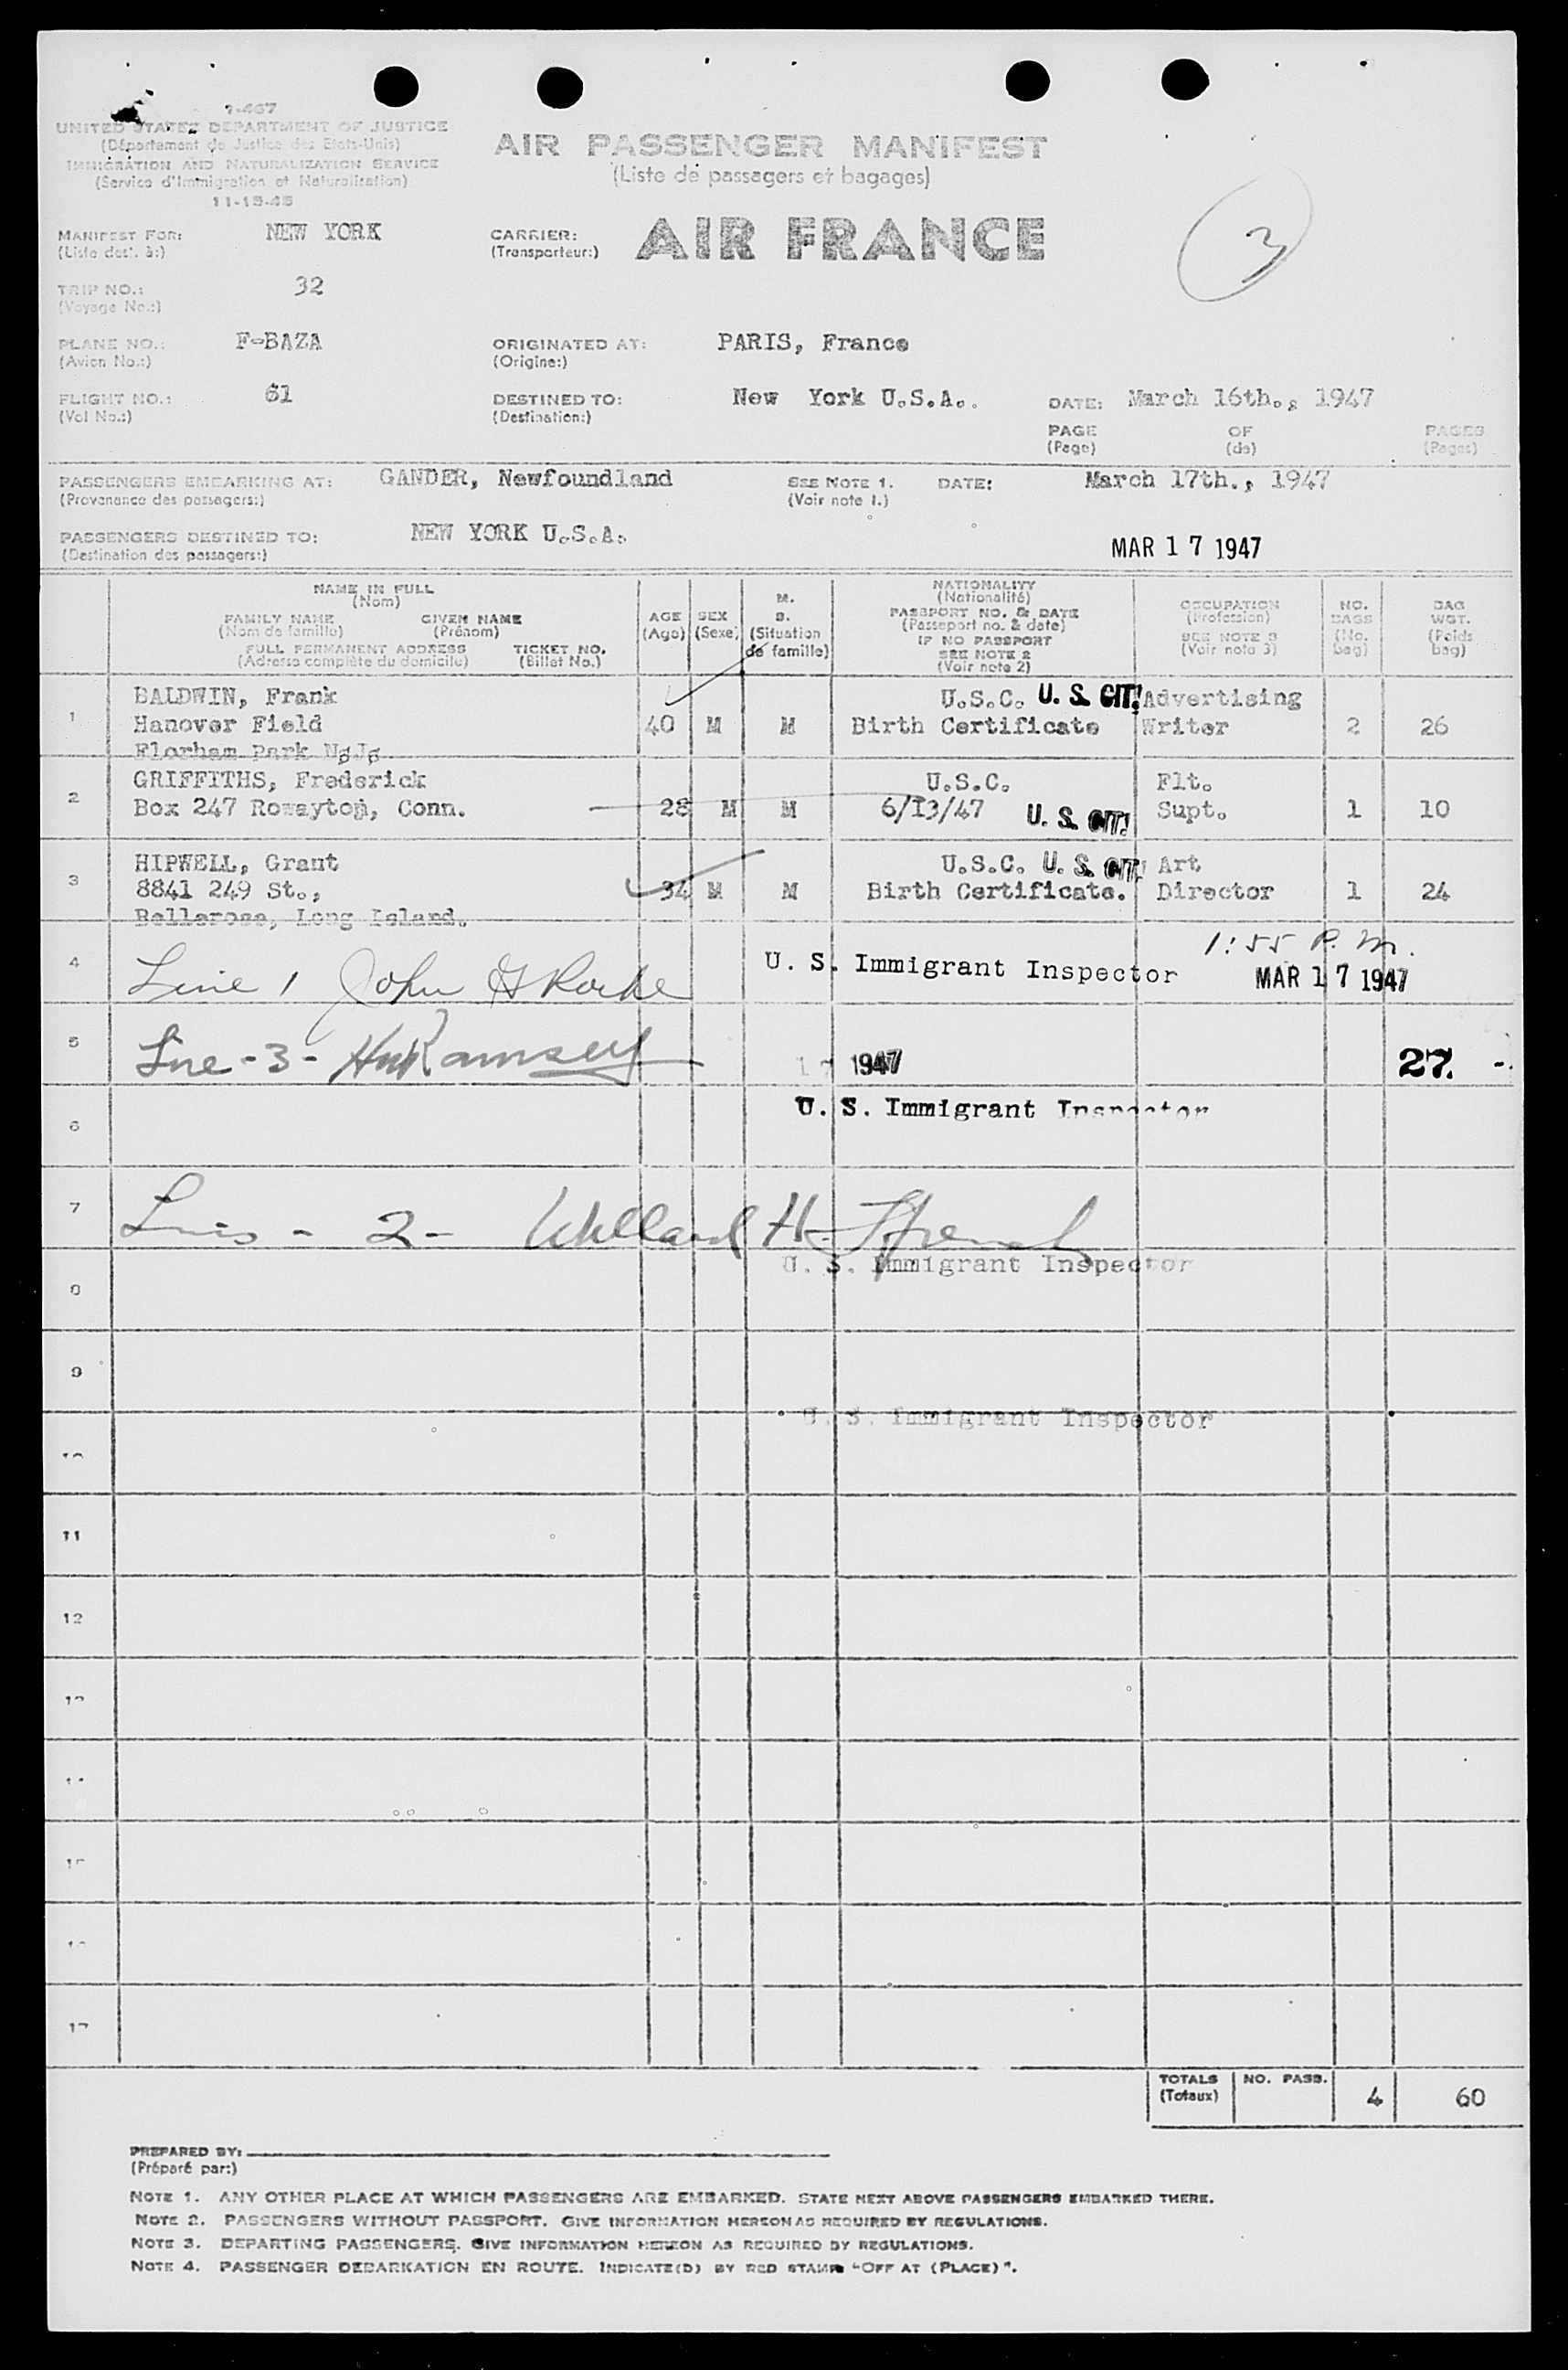 7-467
UNITED STATES DEPARTMENT OF JUSTICE
(Département de Justice des Etats-Unis)
IMMIGRATION AND NATURALIZATION SERVICE
(Service d'Immigration et Naturalisation)
11-15-45
AIR PASSENGER MANIFEST
(Liste de passagers et bagages)
3
MANIFEST FOR: NEW YORK
(Liste dest. à:)
CARRIER: AIR FRANCE
(Transporteur:)
TRIP NO.: 32
(Voyage No.:)
PLANE NO.: F-BAZA
(Avion No.:)
ORIGINATED AT: PARIS, France
(Origine:)
FLIGHT NO.: 61
(Vol No.:)
DESTINED TO: New York U.S.A.
(Destination:)
DATE: March 16th., 1947
PAGE OF PAGES
(Page) (de) (Pages)
PASSENGERS EMBARKING AT: GANDER, Newfoundland
(Provenance des passagers:)
SEE NOTE 1. DATE: March 17th., 1947
(Voir note 1.)
PASSENGERS DESTINED TO: NEW YORK U.S.A.
(Destination des passagers:)
MAR 17 1947
NAME IN FULL
(Nom)
FAMILY NAME GIVEN NAME
(Nom de famille) (Prénom)
FULL PERMANENT ADDRESS TICKET NO.
(Adresse complète du domicile) (Billet No.)
AGE
(Age)
SEX
(Sexe)
M.
S.
(Situation
de famille)
NATIONALITY
(Nationalité)
PASSPORT NO. & DATE
(Passeport no. & date)
IF NO PASSPORT
SEE NOTE 2
(Voir note 2)
OCCUPATION
(Profession)
SEE NOTE 3
(Voir note 3)
NO.
BAGS
(No.
bag)
BAG
WGT.
(Poids
bag)
BALDWIN, Frank U.S.C. U. S. CIT. Advertising
1 Hanover Field 40 M M Birth Certificate Writer 2 26
Florham Park N.J.
GRIFFITHS, Frederick U.S.C. Flt.
2 Box 247 Rowayton, Conn. 28 M M 6/13/47 U. S. CIT. Supt. 1 10
HIPWELL, Grant U.S.C. U. S. CIT. Art
3 8841 249 St., 34 M M Birth Certificate. Director 1 24
Bellerose, Long Island.
1:55 P.M.
4 Line 1 John U. S. Immigrant Inspector MAR 17 1947
5 Line-3- Ramsey 1947 27.
U. S. Immigrant Inspector
6
7 - 2 - H.
U. S. Immigrant Inspector
8
9
U. S. Immigrant Inspector
11
12
17
TOTALS NO. PASS. 4 60
(Totaux)
PREPARED BY:
(Préparé par:)
NOTE 1. ANY OTHER PLACE AT WHICH PASSENGERS ARE EMBARKED. STATE NEXT ABOVE PASSENGERS EMBARKED THERE.
NOTE 2. PASSENGERS WITHOUT PASSPORT. GIVE INFORMATION HEREON AS REQUIRED BY REGULATIONS.
NOTE 3. DEPARTING PASSENGERS. GIVE INFORMATION HEREON AS REQUIRED BY REGULATIONS.
NOTE 4. PASSENGER DEBARKATION EN ROUTE. INDICATE(D) BY RED STAMP "OFF AT (PLACE)".